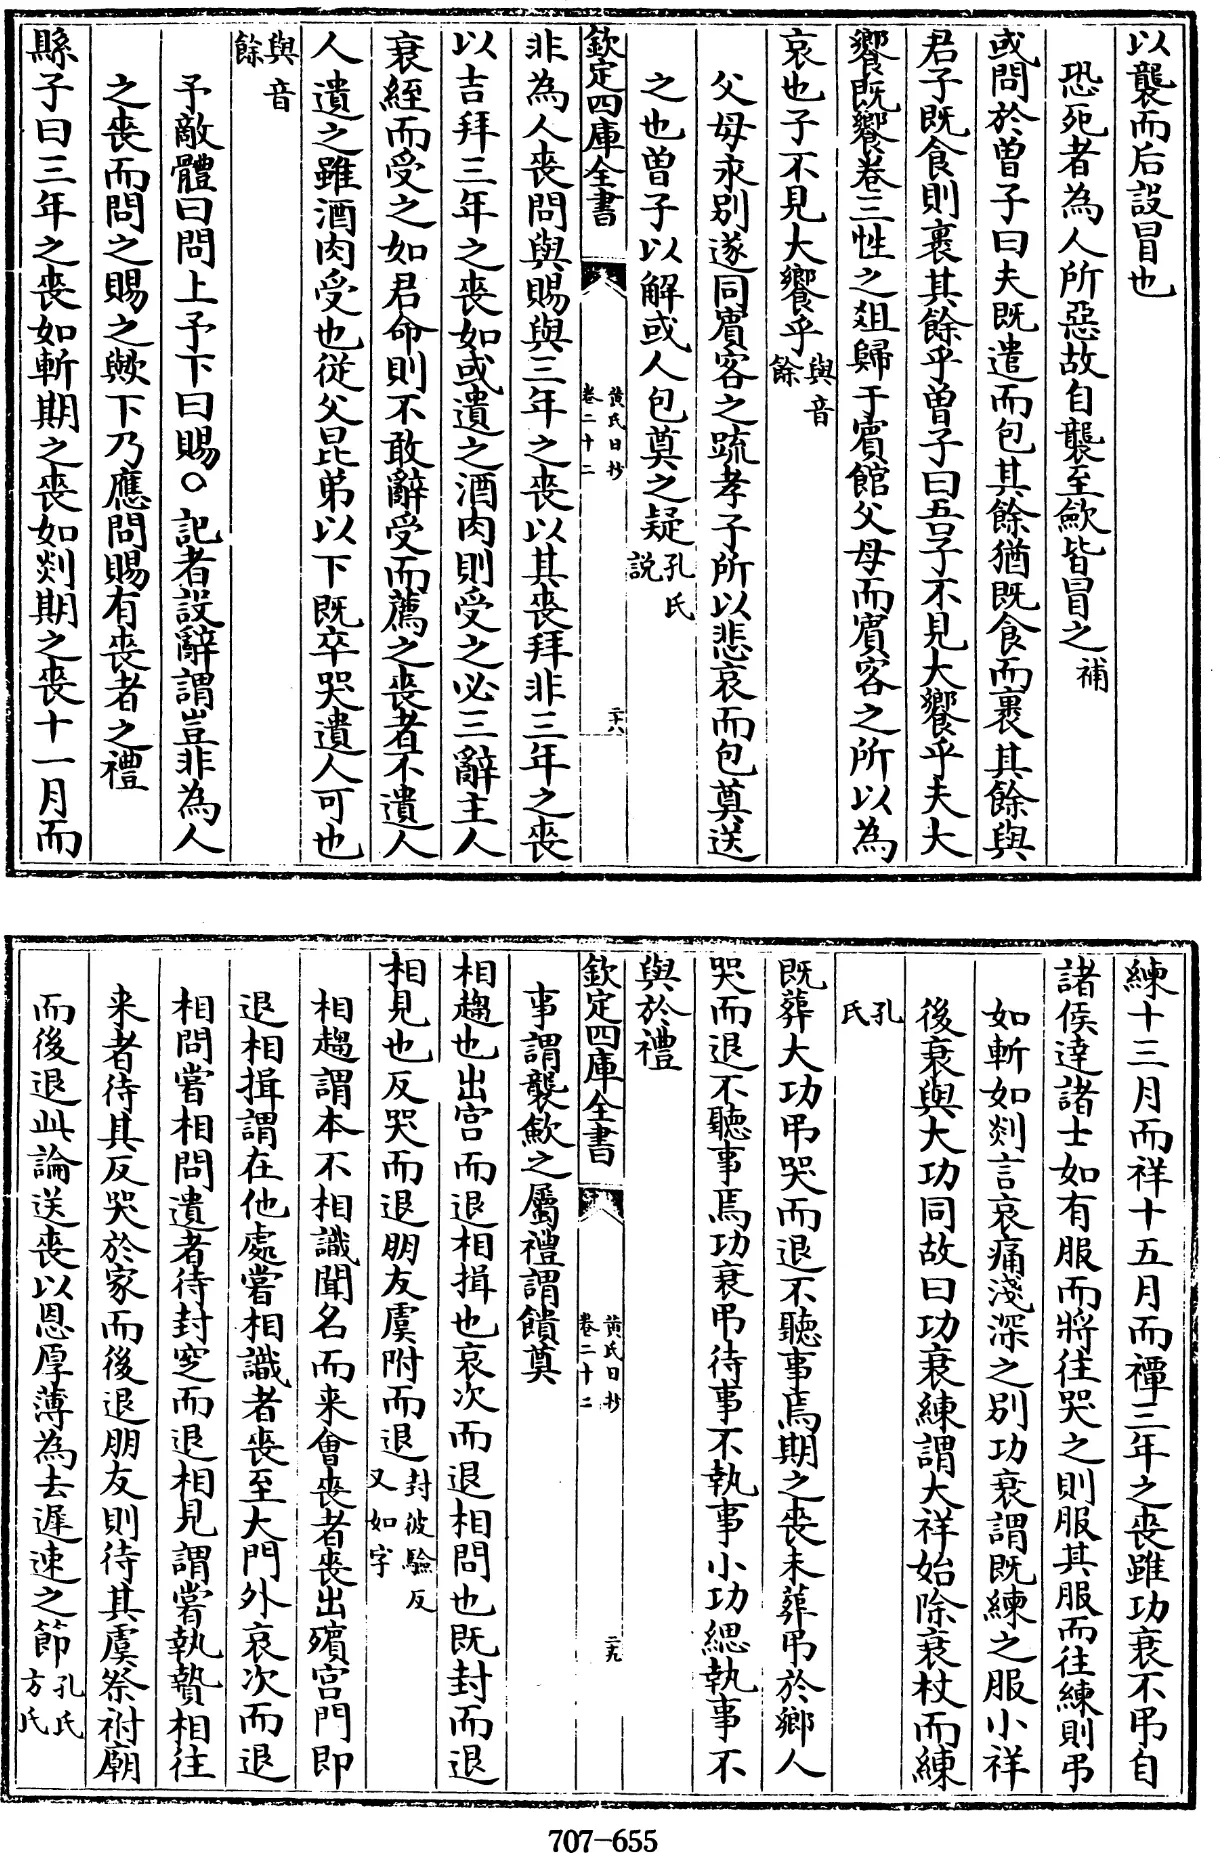 以襲而后設冒也
恐死者為人所惡故自襲至歛皆冒之補
或問於曽子曰夫既遣而包其餘猶既食而裹其餘與
君子既食則裹其餘乎曽子曰吾子不見大饗乎夫大
饗既饗卷三牲之俎歸于賔館父母而賔客之所以為
哀也子不見大饗乎與音餘
父母永别遂同賔客之疏孝子所以悲哀而包奠送
之也曽子以解或人包奠之疑孔氏説
欽定四庫全書
黄氏日抄
卷二十二
二十八
非為人喪問與賜與三年之喪以其喪拜非三年之喪
以吉拜三年之喪如或遺之酒肉則受之必三辭主人
衰絰而受之如君命則不敢辭受而薦之喪者不遺人
人遺之雖酒肉受也從父昆弟以下既卒哭遺人可也
與音餘
予敵體曰問上予下曰賜○記者設辭謂豈非為人
之喪而問之賜之歟下乃應問賜有喪者之禮
縣子曰三年之喪如斬期之喪如剡期之喪十一月而
練十三月而祥十五月而禫三年之喪雖功衰不弔自
諸侯逹諸士如有服而將往哭之則服其服而往練則弔
如斬如剡言哀痛淺深之别功衰謂既練之服小祥
後衰與大功同故曰功衰練謂大祥始除衰杖而練
孔氏
既葬大功弔哭而退不聽事焉期之喪未葬弔於鄉人
哭而退不聽事焉功衰弔待事不執事小功緦執事不
與於禮
欽定四庫全書
黄氏日抄
卷二十二
二十九
事謂襲歛之屬禮謂饋奠
相趨也出宫而退相揖也哀次而退相問也既封而退
相見也反哭而退朋友虞附而退封彼驗反又如字
相趨謂本不相識聞名而来會喪者喪出殯宫門即
退相揖謂在他處嘗相識者喪至大門外哀次而退
相問嘗相問遺者待封窆而退相見謂嘗執贄相往
来者待其反哭於家而後退朋友則待其虞祭祔廟
而後退此論送喪以恩厚薄為去遲速之節孔氏方氏
707-655